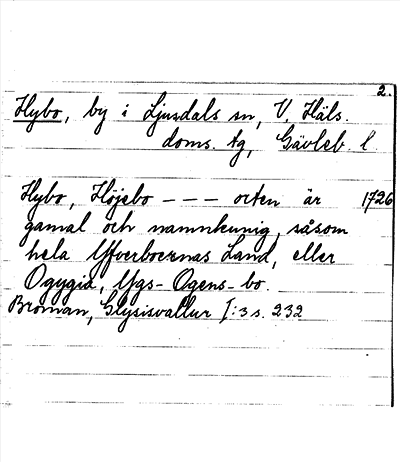 2.
Hybo, by i Ljusdals sn, V. Häls.
doms. tg, Gävleb. l
Hybo, Höjebo - - - orten är 1726
gamal och namnkunig, såsom
hela Yfverboernas Land, eller
Ogygia, Ygs- Ogens- bo.
Broman, Glysisvallur I:3 s. 232